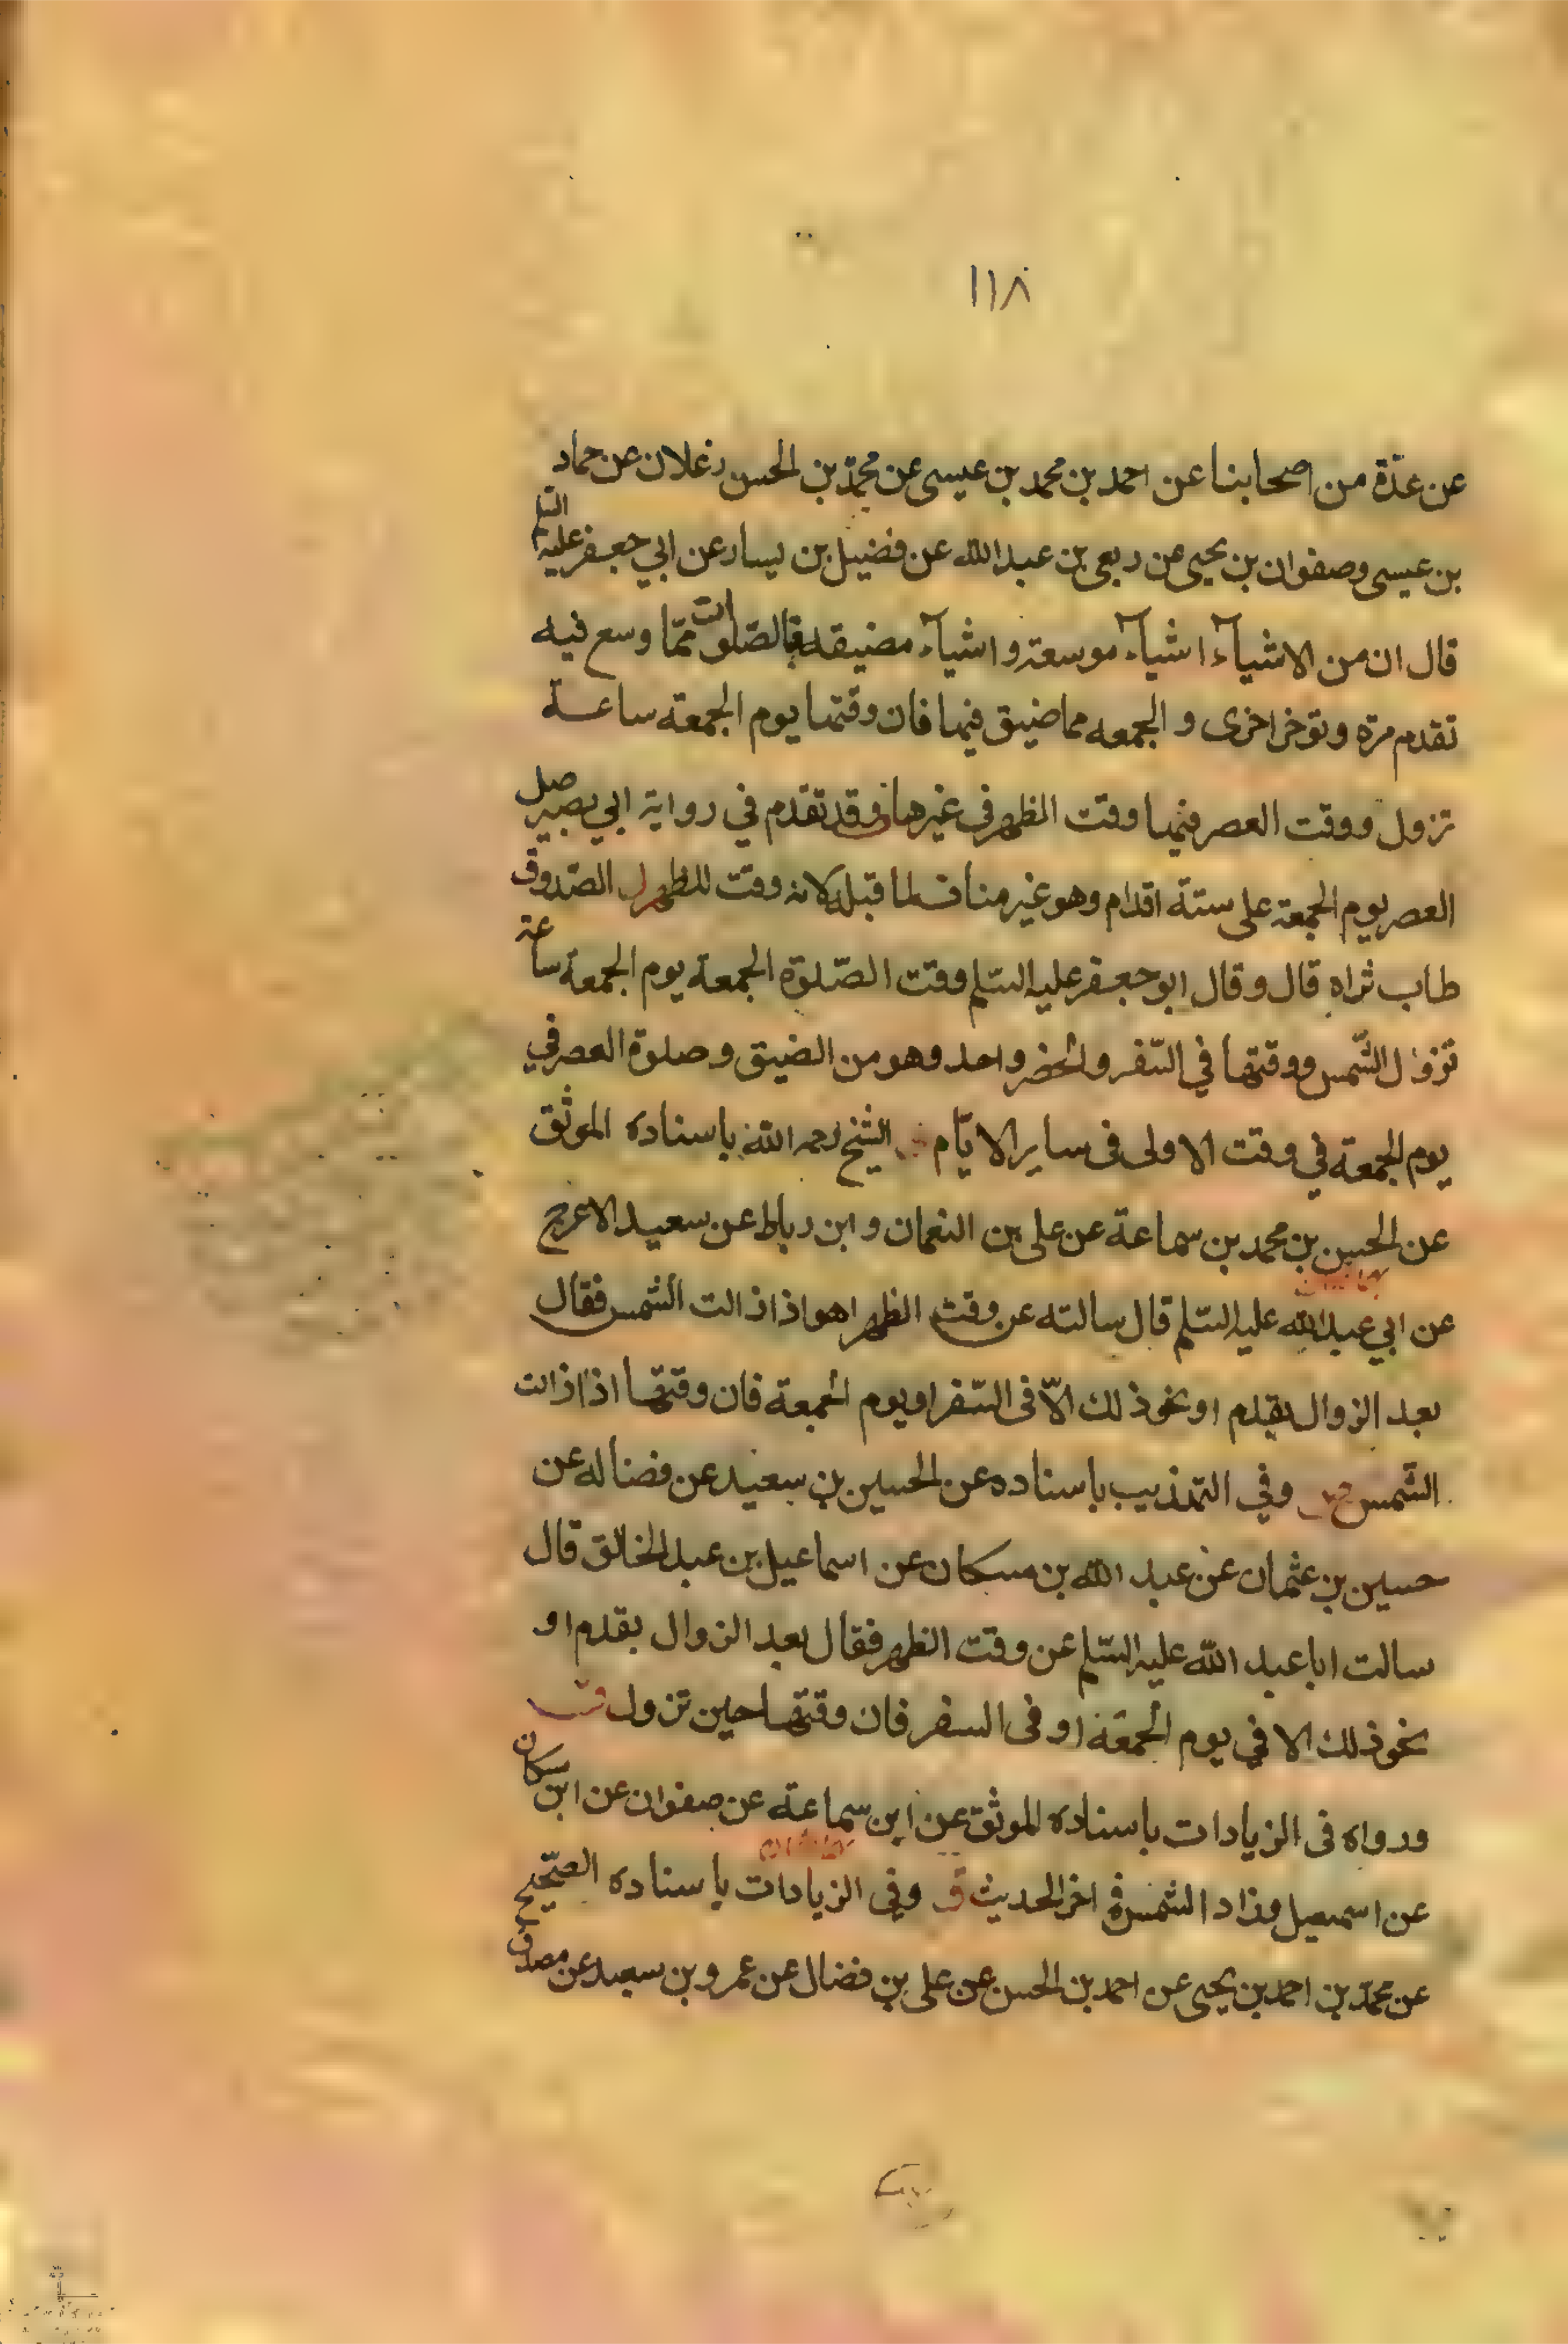 ١١٨
عن عدّة من اصحابنا عن احمد بن محمد بن عيسى عن محمّد بن الحسن زعلان عن حماد
بن عيسى وصفوان بن يحيى عن ربعى بن عبد الله عن فضيل بن يسار عن ابي جعفر عليه السلم
قال ان من الاشيآء اشيآء موسعة واشيآء مضيقه فالصّلوات ممّا وسع فيه
تقدم مرة وتوخر اخرى و الجمعه مما ضيق فيها فان وقتها يوم الجمعة ساعة
تزول ووقت العصر فيها وقت الظهر في غيرها وقد تقدم في رواية ابي بصير صل
العصر يوم الجمعة على ستة اقدام وهو غير مناف لما قبله لانه وقت للظهر الصّدوق
طاب ثراه قال وقال ابو جعفر عليه السّلم وقت الصّلوة الجمعة يوم الجمعة ساعة
تزول الشّمس ووقتها في السّفر والحضر واحد وهو من الضيق وصلوة العصر في
يوم الجمعة في وقت الاولى فى ساير الايّام الشيخ رحمه الله باسناده الموثق
عن الحسن بن محمد بن سماعة عن على بن النعمان وابن رباط عن سعيد الاعرج
عن ابي عبد الله عليه السّلم قال سالته عن وقت الظهر اهو اذا زالت الشمس فقال
بعد الزوال بقدم او نحو ذلك الّا فى السّفر او يوم الجمعة فان وقتها اذا زالت
الشّمس وفي التهذيب باسناده عن الحسين بن سعيد عن فضاله عن
حسين بن عثمان عن عبد الله بن مسكان عن اسماعيل بن عبد الخالق قال
سالت ابا عبد الله عليه السّلم عن وقت الظهر فقال بعد الزوال بقدم او
نحو ذلك الا في يوم الجمعة او فى السفر فان وقتها حين تزول
ورواه فى الزيادات باسناده الموثق عن ابن سماعة عن صفوان عن ابن مسكان
عن اسمعيل وزاد الشمس في اخر الحديث وفي الزيادات باسناده الصّحيح
عن محمّد بن احمد بن يحيى عن احمد بن الحسن عن على بن فضال عن عمرو بن سعيد عن مصدق